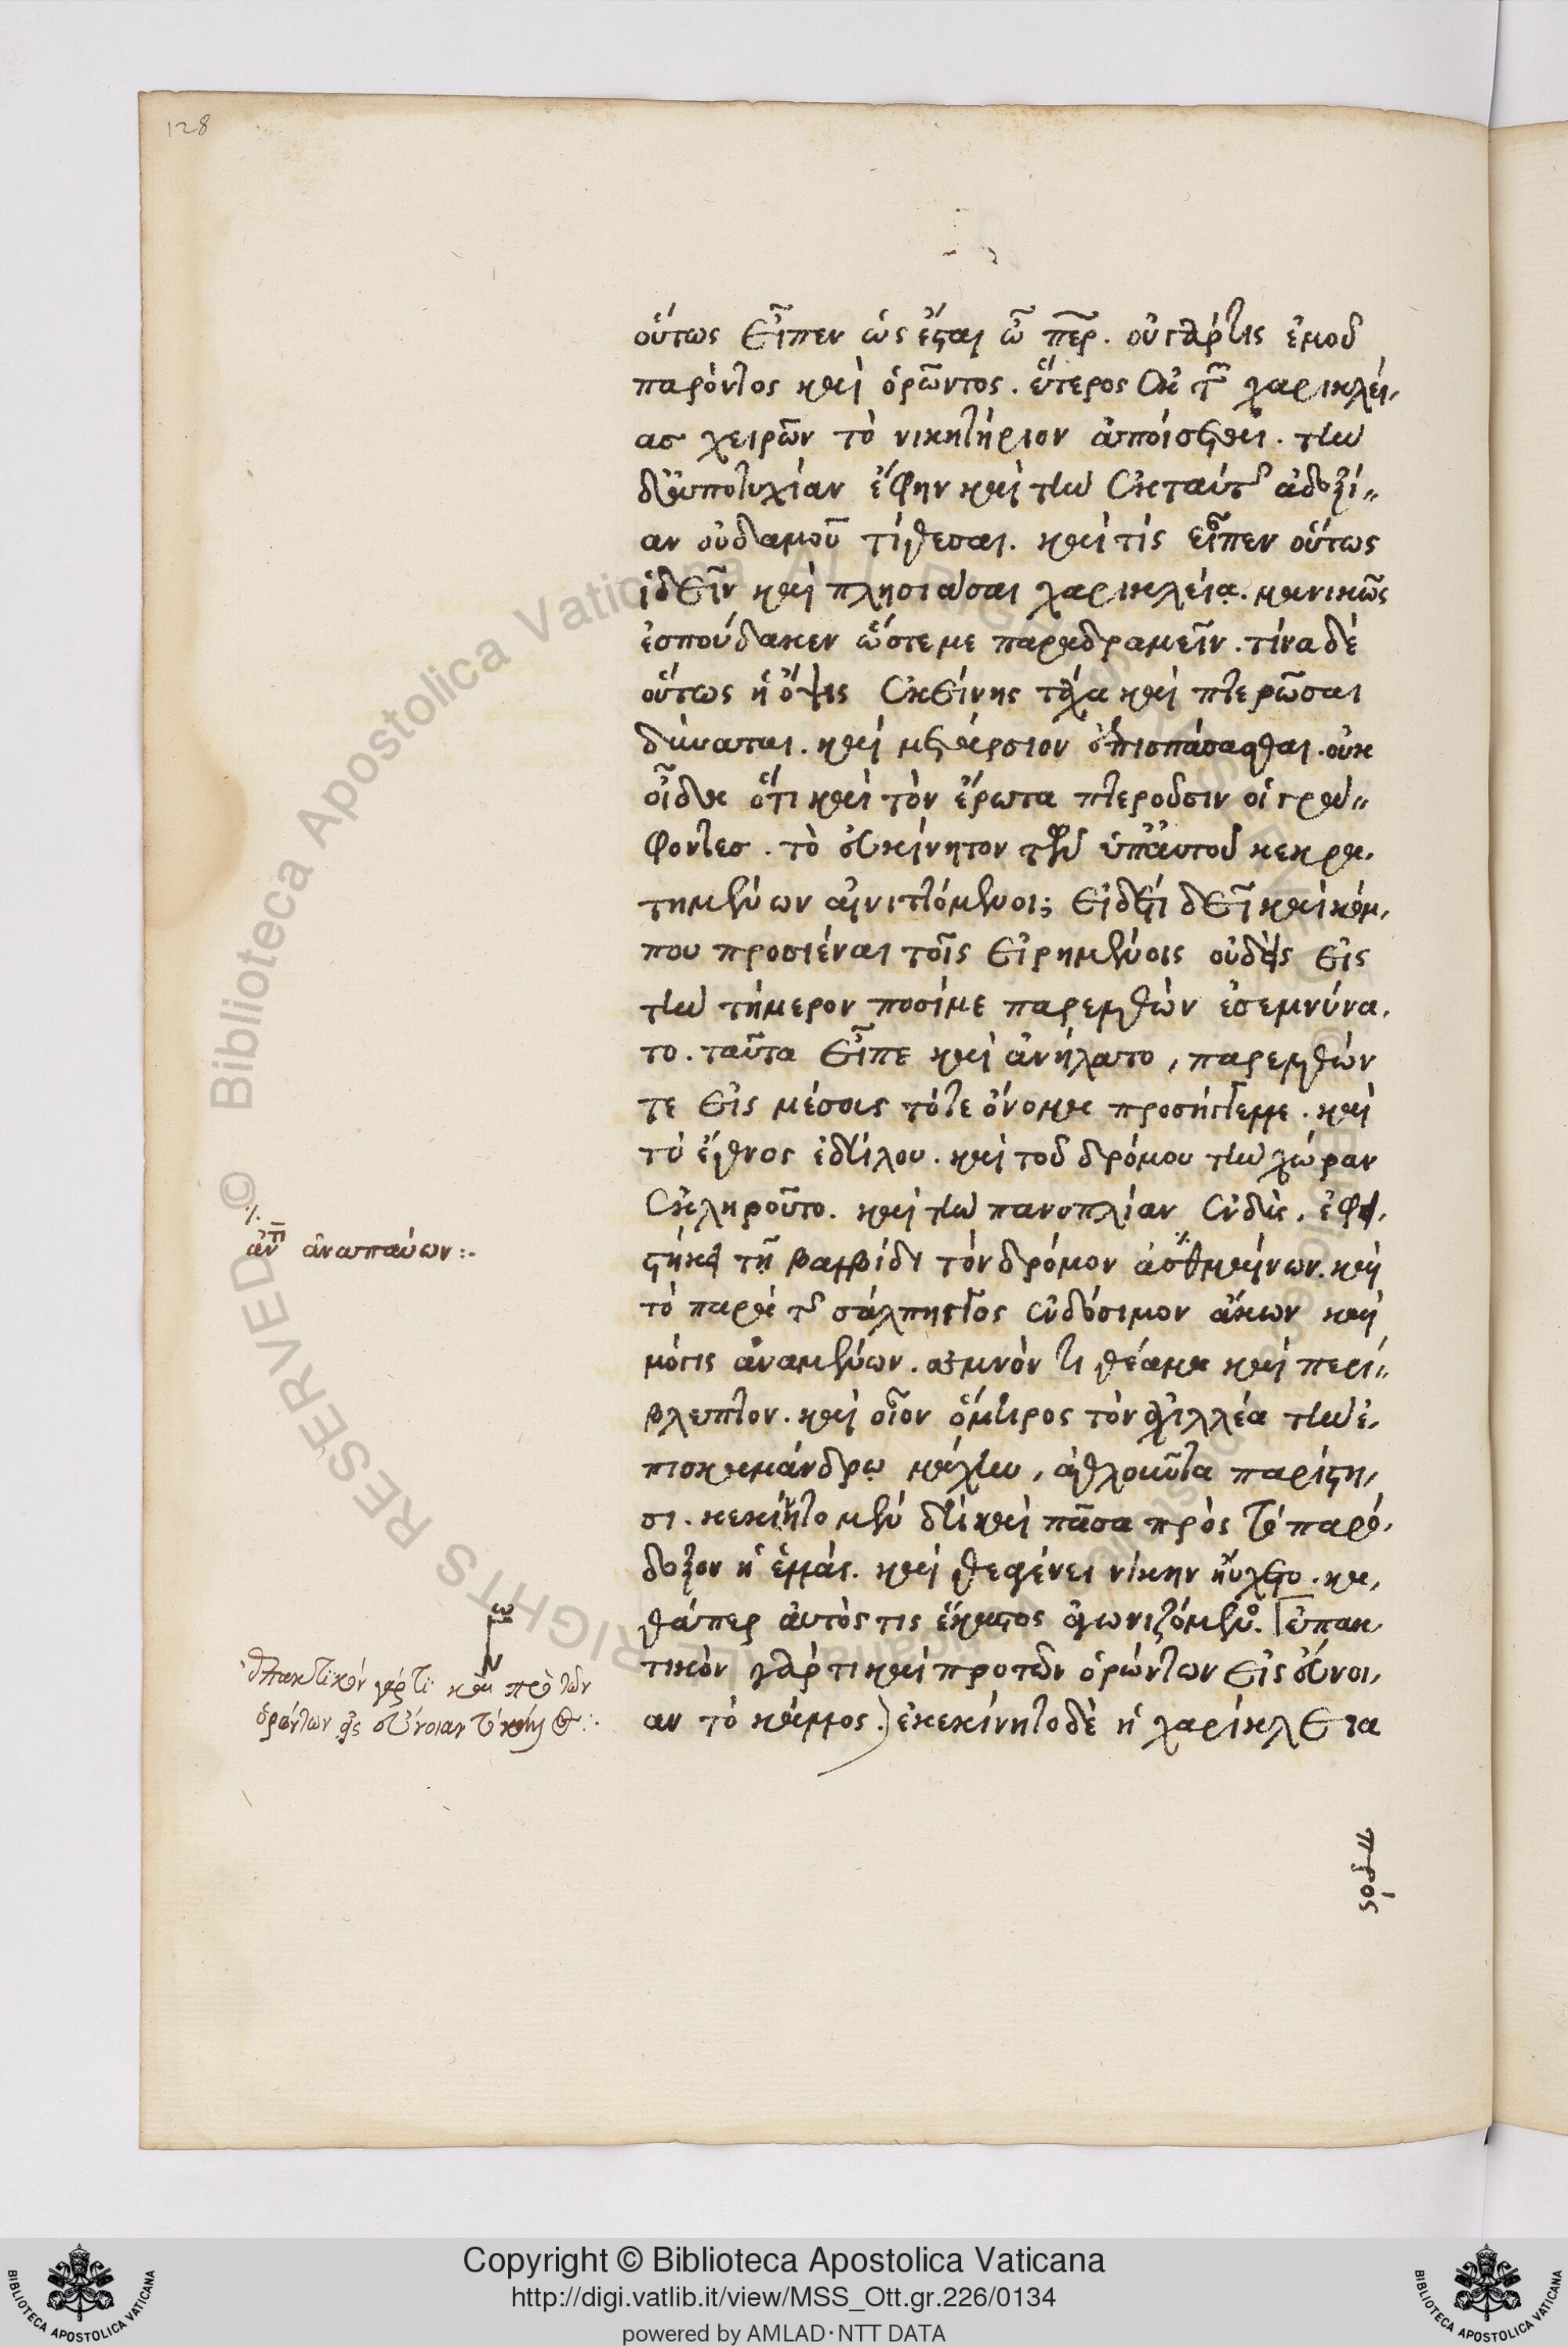 128
οὕτως εἶπεν ὡς ἔσται ὦ περ. οὐ γάρ τις ἐμοῦ
παρόντος καὶ ὁρῶντος. ἕτερος ἐκ τῶν χαρικλεί,
ασ χειρῶν τὸ νικητήριον ἀποίσεται. τὴν
δ' ἀποτυχίαν ἔφην καὶ τὴν ἐκ ταύτης ἀδοξί,,
αν οὐδαμοῦ τίθεσαι. καὶ τίς εἶπεν οὕτως
ἰδεῖν καὶ πλησιάσαι χαρικλείᾳ. μανικῶς
ἐσπούδακεν ὥστε με παραδραμεῖν. τίνα δὲ
οὕτως ἡ ὄψις ἐκείνης τάχα καὶ πτερῶσαι
δύναται. καὶ μετάρσιον ἐπισπάσασθαι. οὐκ
οἶδα ὅτι καὶ τὸν ἔρωτα πτεροῦσιν οἱ γρά,,
φοντεσ. τὸ εὐκίνητον τῶν ὑπ' αὐτοῦ κεκρα,
τημένων αἰνιττόμενοι; εἰ δέ τι δεῖ καὶ κόμ,
που προσιέναι τοῖς εἰρημένοις οὐδεὶς εἰς
τὴν τήμερον ποσί με παρελθὼν ἐσεμνύνα,
το. ταῦτα εἶπε καὶ ἀνήλατο, παρελθών
τε εἰς μέσους τό τε ὄνομα προσήγγελλε. καὶ
τὸ ἔθνος ἐδήλου. καὶ τοῦ δρόμου τὴν χώραν
ἐκληροῦτο. καὶ τὴν πανοπλίαν ἐνδὺς, ἐφ,
στήκει τῇ βαλβῖδι τὸν δρόμον ἀσθμαίνων. καὶ
τὸ παρὰ τῆς σάλπιγγος ἐνδόσιμον ἄκων καὶ
μόγις ἀναμένων. σεμνόν τι θέαμα καὶ περί,,
βλεπτον. καὶ οἷον ὅμηρος τὸν ἀχιλλέα τὴν ἐ,
πι σκαμάνδρῳ μάχην, ἀθλοῦντα παρίστη,
σι. κεκίνητο μὲν δὴ καὶ πᾶσα πρὸς τὸ παρά,
δοξον ἡ ἑλλάς. καὶ θεαγένει νίκην ηὔχετο. κα,
θάπερ αὐτός τις ἕκαστος ἀγωνιζόμενος. ἐπακ,
τικὸν γάρ τι καὶ πρὸ τῶν ὁρώντων εἰς εὔνοι,
αν τὸ κάλλος.) ἐκεκίνητο δὲ ἡ χαρίκλεια
πρὸς
ἀντὶ ἀναπαύων:.
ἐπακτικὸν γάρ τι καὶ πρὸ τῶν
ὁρώντων εἰς εὔνοιαν τὸ κάλλος:.
Copyright © Biblioteca Apostolica Vaticana
http://digi.vatlib.it/view/MSS_Ott.gr.226/0134
powered by AMLAD·NTT DATA
BIBLIOTECA APOSTOLICA VATICANA
BIBLIOTECA APOSTOLICA VATICANA
© Biblioteca Apostolica Vaticana ALL RIGHTS RESERVED